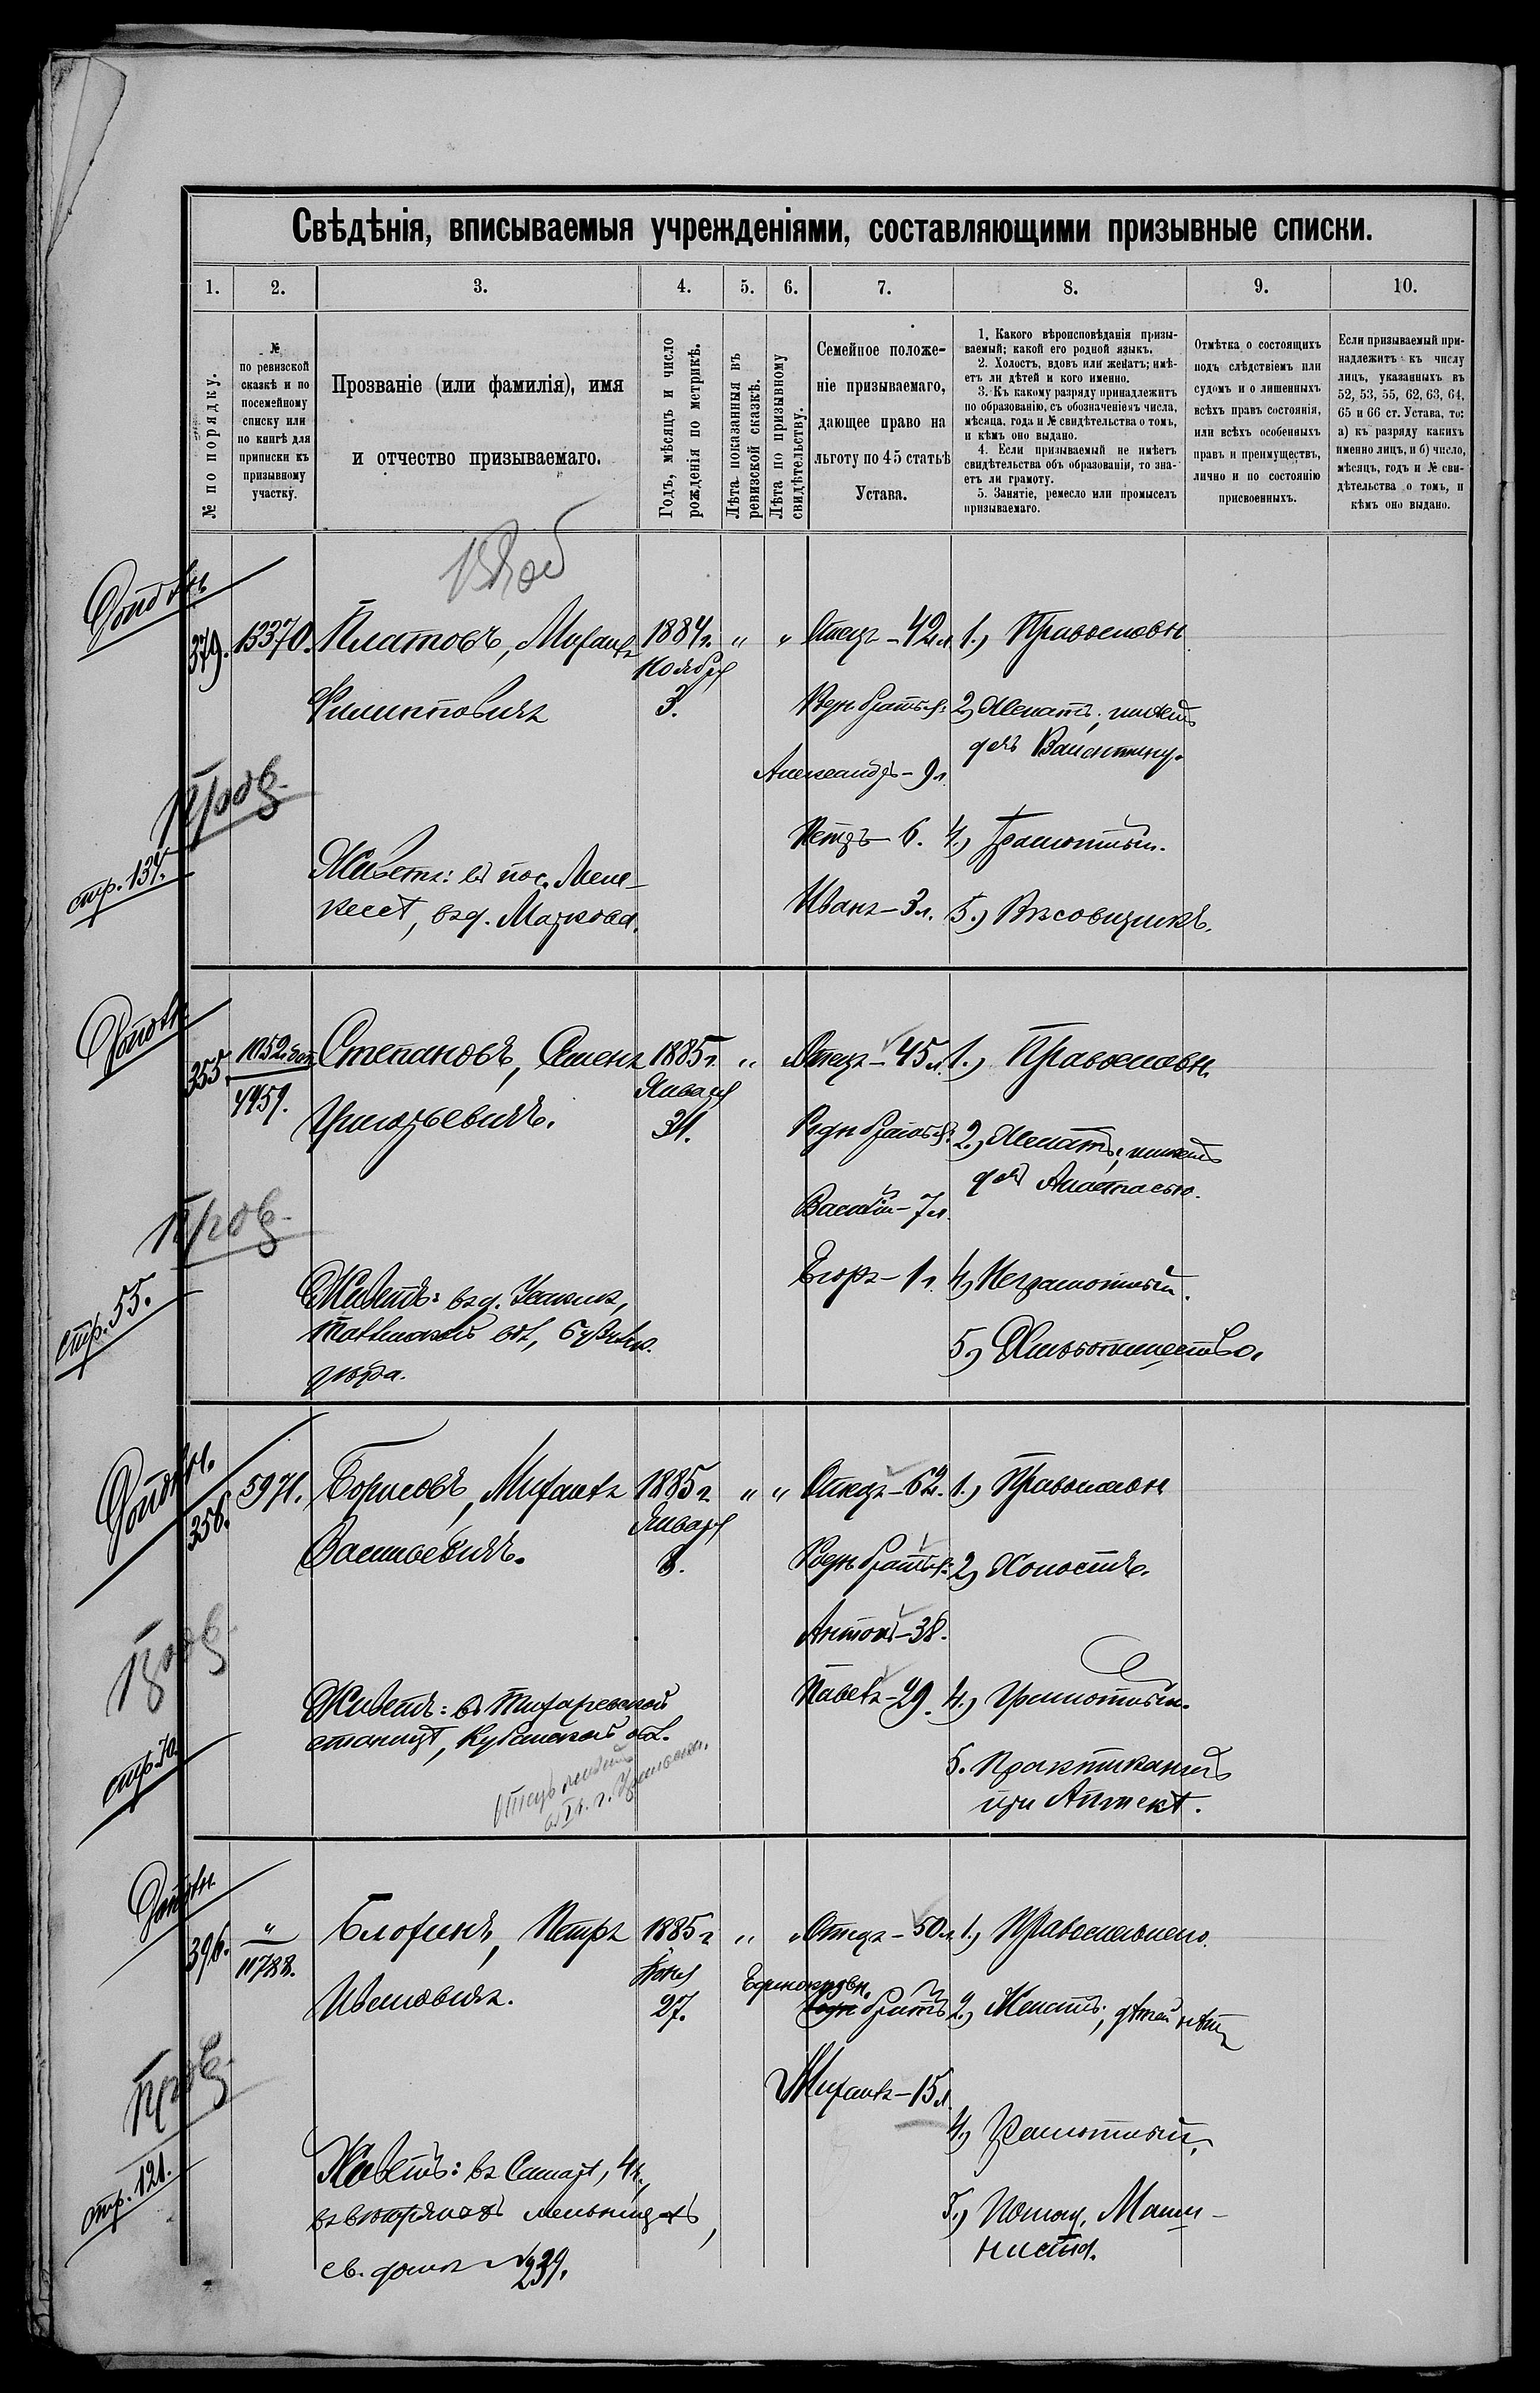 Свѣдѣнія, вписываемыя учрежденіями, составляющими призывные списки.
1. 2. 3. 4. 5. 6. 7. 8. 9. 10.
№ по порядку.
№
по ревизской
сказкѣ и по
посемейному
списку или
по книгѣ для
приписки къ
призывному
участку.
Прозваніе (или фамилія), имя
и отчество призываемаго.
Годъ, мѣсяцъ и число
рожденія по метрикѣ.
Лѣта показанныя въ
ревизской сказкѣ.
Лѣта по призывному
свидѣтельству.
Семейное положе-
ніе призываемаго,
дающее право на
льготу по 45 статьѣ
Устава.
1. Какого вѣроисповѣданія призы-
ваемый; какой его родной языкъ.
2. Холостъ, вдовъ или женатъ; имѣ-
етъ ли дѣтей и кого именно.
3. Къ какому разряду принадлежитъ
по образованію, съ обозначеніемъ числа,
мѣсяца, года и № свидѣтельства о томъ,
и кѣмъ оно выдано.
4. Если призываемый не имѣетъ
свидѣтельства объ образованіи, то зна-
етъ ли грамоту.
5. Занятіе, ремесло или промыселъ
призываемаго.
Отмѣтка о состоящихъ
подъ слѣдствіемъ или
судомъ и о лишенныхъ
всѣхъ правъ состоянія,
или всѣхъ особенныхъ
правъ и преимуществъ,
лично и по состоянію
присвоенныхъ.
Если призываемый при-
надлежитъ къ числу
лицъ, указанныхъ въ
52, 53, 55, 62, 63, 64,
65 и 66 ст. Устава, то:
а) къ разряду какихъ
именно лицъ, и б) число,
мѣсяцъ, годъ и № сви-
дѣтельства о томъ, и
кѣмъ оно выдано.
379. 13370. Платовъ, Михаилъ 1884 г. " " Отецъ - 42 л. 1.) Православн.
Ноября
Филипповичъ 3. братья: 2) Женатъ, имѣетъ
дочь Валентину.
Александръ - 9 л.
Пров.
Петръ - 6. 4.) Грамотный.
стр. 134.
Живетъ: въ пос. Меле-
кессѣ, въ д. Маркова.
Иванъ - 3 л. 5.) Вѣсовщикъ.
355. Степановъ, Семенъ 1885 г. " " Отецъ - 45 л. 1.) Православн.
4959. Января
Григорьевичъ. 31. Родн. братья: 2.) Женатъ, имѣетъ
дочь Анастасью.
Василій - 7 л.
Пров.
Егоръ - 1 г. 4.) Неграмотный.
стр. 55.
Живетъ: въ д.
5.) Хлѣбопашество.
356. 5971. Борисовъ, Михаилъ 1885 г. " " Отецъ - 62. 1.) Православн.
Января
Васильевичъ. Родн. братья: 2) Холостъ.
Антонъ - 38.
Пров.
Живетъ: въ Тихорецкой
Павелъ - 29. 4.) Грамотный.
станицѣ, Кубанской обл.
стр. 70.
5. Практикантъ
при Аптекѣ.
396. " Блохинъ, Петръ 1885 г. " " Отецъ - 50 л. 1.) Православнаго.
11788. Іюня
Ивановичъ. 27. Единокровн.
братъ 2.) Женатъ, дѣтей нѣтъ
Михаилъ - 15 л.
Пров.
4.) Грамотный.
Живетъ: въ Самарѣ, 4 ч.,
стр. 121.
5.) Помощ. Маши-
ниста.
св. домъ № 239.